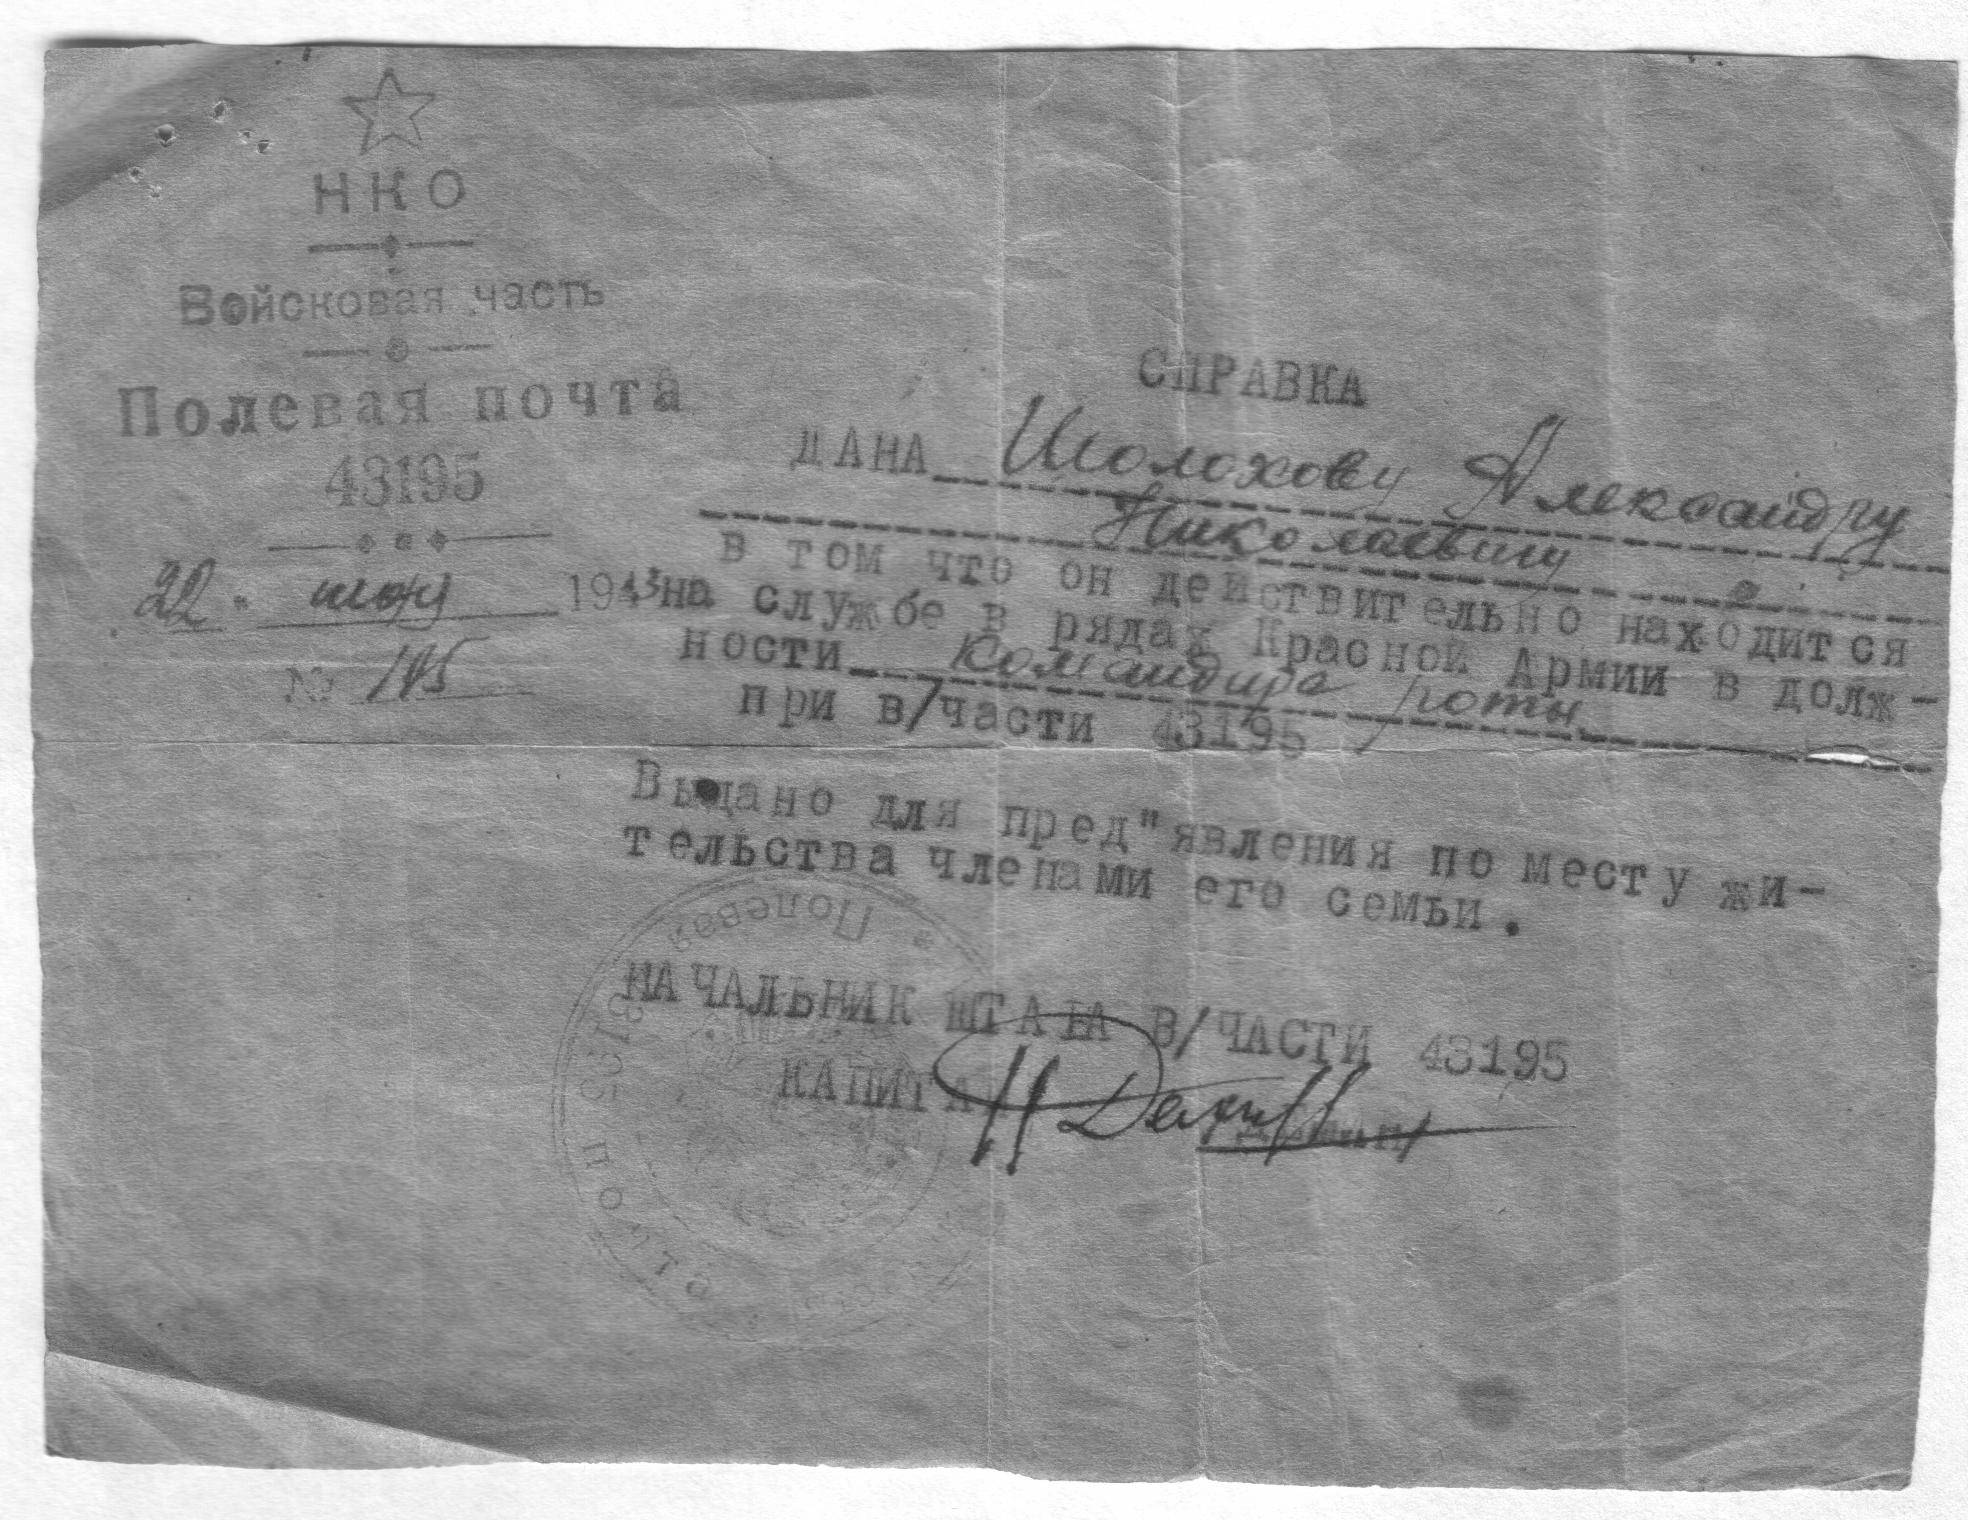 НКО
Войсковая часть
Полевая почта
43195
22 " июня 1943
№ 105
СПРАВКА
ДАНА Шолохову Александру
Николаевичу
в том что он действительно находится
на службе в рядах Красной Армии в долж-
ности командира роты
при в/части 43195
Выдано для пред"явления по месту жи-
тельства членами его семьи.
НАЧАЛЬНИК ШТАБА В/ЧАСТИ 43195
КАПИТАН
Полевая почта